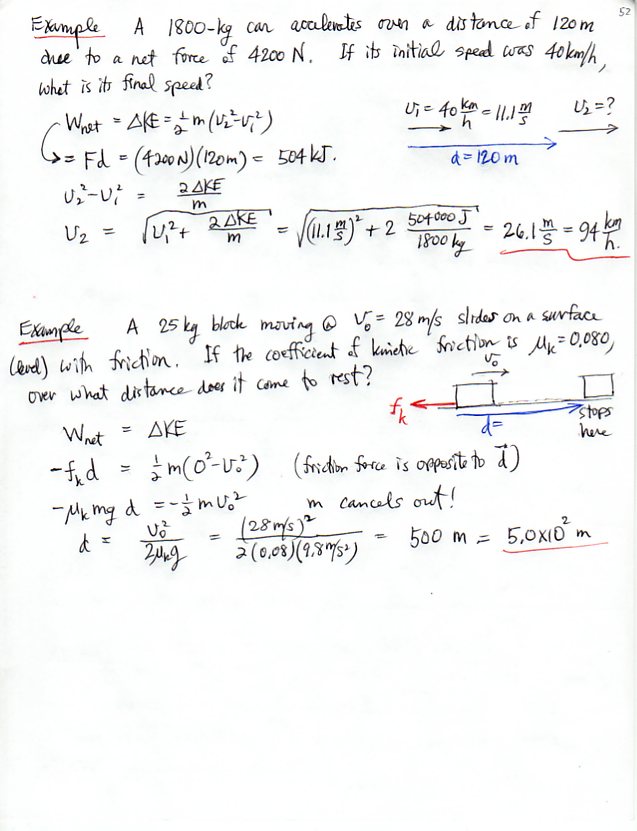 52
Example A 1800-kg car accelerates over a distance of 120 m
due to a net force of 4200 N. If its initial speed was 40 km/h,
what is its final speed?
W_net = ΔKE = 1/2 m(v₂² - v₁²)
v₁ = 40 km/h = 11.1 m/s v₂ = ?
d = 120 m
↳ = Fd = (4200 N)(120 m) = 504 kJ.
v₂² - v₁² = 2ΔKE/m
v₂ = √(v₁² + 2ΔKE/m) = √((11.1 m/s)² + 2 504000 J/1800 kg) = 26.1 m/s = 94 km/h.
Example A 25 kg block moving @ v₀ = 28 m/s slides on a surface
(level) with friction. If the coefficient of kinetic friction is μ_k = 0,080,
over what distance does it come to rest?
v₀
f_k
d =
stops
here
W_net = ΔKE
-f_k d = 1/2 m(0² - v₀²) (friction force is opposite to d⃗)
-μ_k mg d = -1/2 m v₀² m cancels out!
d = v₀²/2μ_k g = (28 m/s)²/2(0,08)(9,8 m/s²) = 500 m = 5,0x10² m